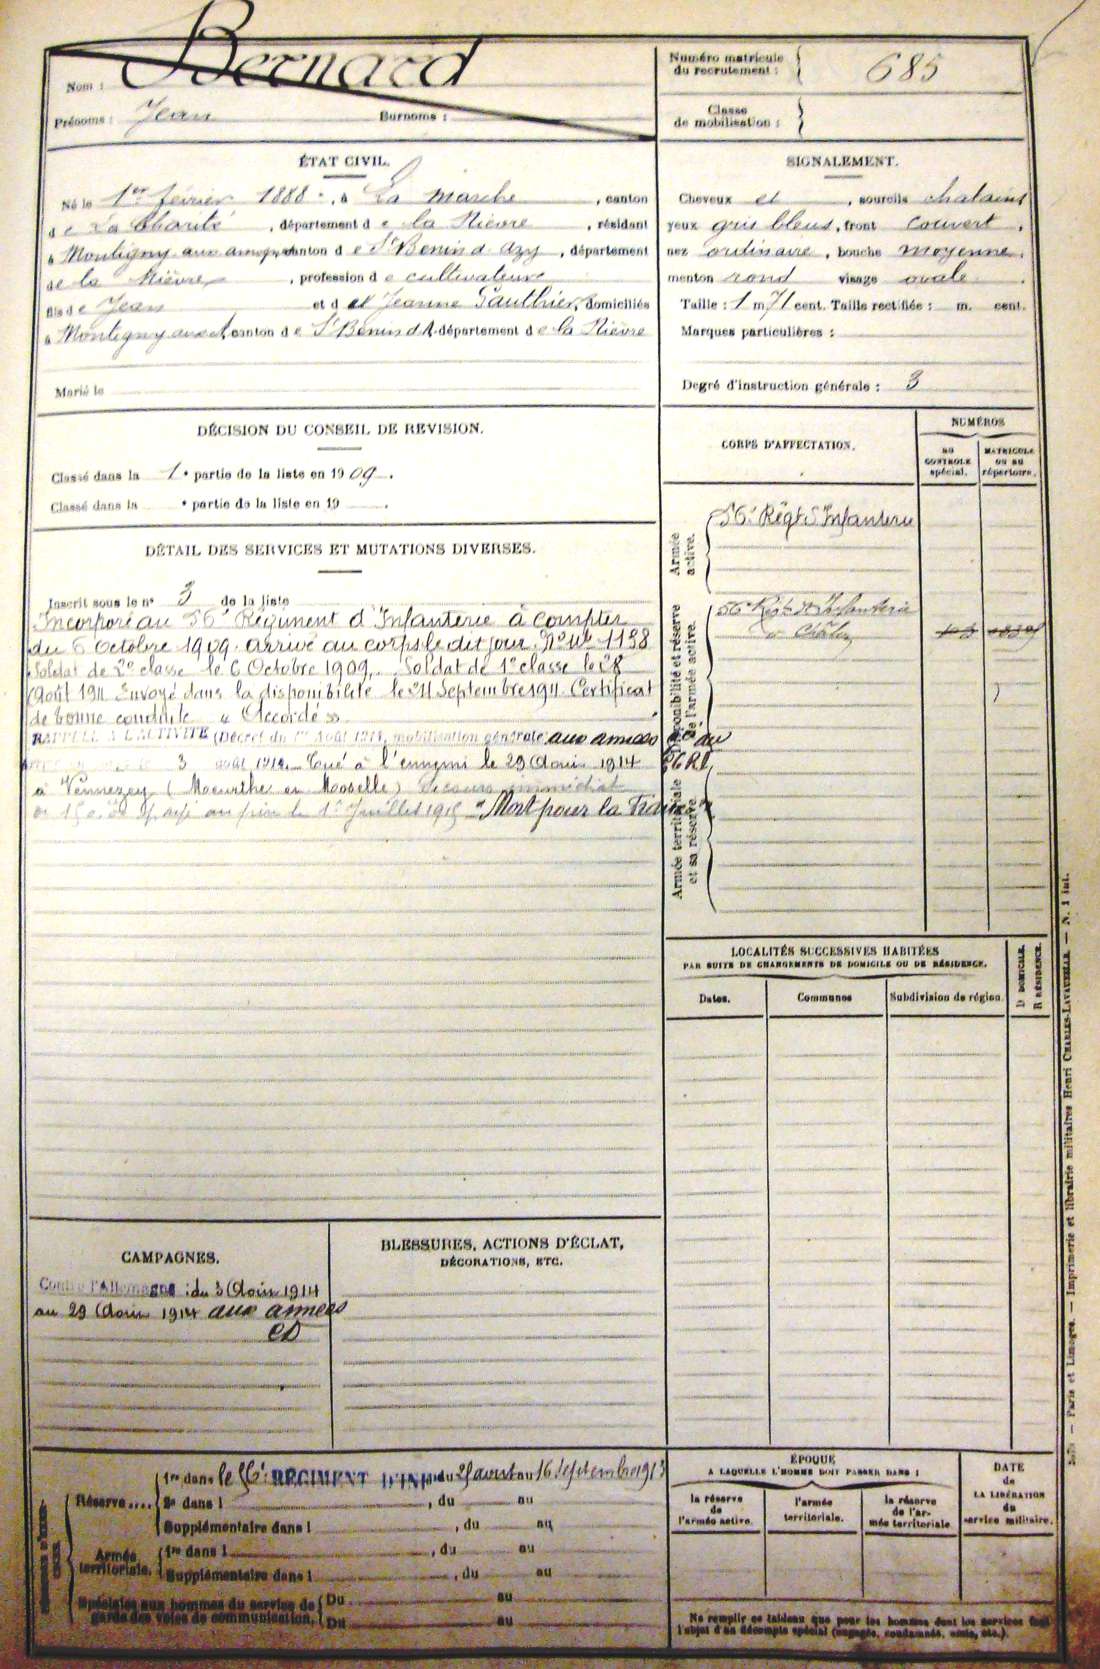 Nom : Bernard
Prénoms : Jean Surnoms :
Numéro matricule
du recrutement : 685
Classe
de mobilisation :
ÉTAT CIVIL.
Né le 1er février 1888, à La marche, canton
de La Charité, département de la Nièvre, résidant
à Montigny aux amognes canton de St Benin d'Azy, département
de la Nièvre, profession de cultivateur
fils de Jean et d et Jeanne Gauthier, domiciliés
à Montigny aux A, canton de St Benin d'A. département de la Nièvre
Marié le
SIGNALEMENT.
Cheveux et , sourcils chatains
yeux gris bleus, front couvert,
nez ordinaire, bouche moyenne,
menton rond visage ovale.
Taille : 1 m 71 cent. Taille rectifiée : m. cent.
Marques particulières :
Degré d'instruction générale : 3
DÉCISION DU CONSEIL DE REVISION.
Classé dans la 1e partie de la liste en 1909.
Classé dans la e partie de la liste en 19 .
DÉTAIL DES SERVICES ET MUTATIONS DIVERSES.
Inscrit sous le no 3 de la liste
Incorporé au 56e Régiment d'Infanterie à compter
du 6 octobre 1909. arrivé au corps le dit jour. No 1138
Soldat de 2e classe le 6 Octobre 1909. Soldat de 1e classe le 28
Août 1911 Envoyé dans la disponibilité le 24 Septembre 1911. Certificat
de bonne conduite "Accordé"
RAPPELÉ A L'ACTIVITÉ (Décret du 1er Août 1914, mobilisation générale) aux armées du
3 août 1914. Tué à l'ennemi le 29 Août 1914 56 RI
à Vennezey (Meurthe et Moselle) Secours immédiat
de 150 1er Juillet 1915 "Mort pour la France"
CORPS D'AFFECTATION.
NUMÉROS
AU CONTROLE spécial.
MATRICULE OU AU répertoire.
Armée active.
56e Régt d'Infanterie
Disponibilité et réserve de l'armée active.
56e Régt d'Infanterie
à Châlon
Armée territoriale et sa réserve.
LOCALITÉS SUCCESSIVES HABITÉES
PAR SUITE DE CHANGEMENTS DE DOMICILE OU DE RÉSIDENCE.
Dates. Communes Subdivision de région.
D DOMICILE.
R RÉSIDENCE.
CAMPAGNES.
Contre l'Allemagne : du 3 Août 1914
au 29 Août 1914 aux armées
CD
BLESSURES, ACTIONS D'ÉCLAT,
DÉCORATIONS, ETC.
Réserve....
1re dans le 56e RÉGIMENT D'INF du 25 août au 16 Septembre 1913
2e dans l , du au
Supplémentaire dans l , du au
Armée territoriale.
1re dans l , du au
Supplémentaire dans l , du au
Spéciales aux hommes du service de
garde des voies de communication.
Du au
Du au
ÉPOQUE
A LAQUELLE L'HOMME DOIT PASSER DANS :
la réserve de l'armée active.
l'armée territoriale.
la réserve de l'armée territoriale
DATE
de
LA LIBÉRATION
du
service militaire.
Ne remplir ce tableau que pour les hommes dont les services font
l'objet d'un décompte spécial (engagés, condamnés, omis, etc.).
Paris et Limoges. — Imprimerie et librairie militaires Henri CHARLES-LAVAUZELLE. — N. 1 int.